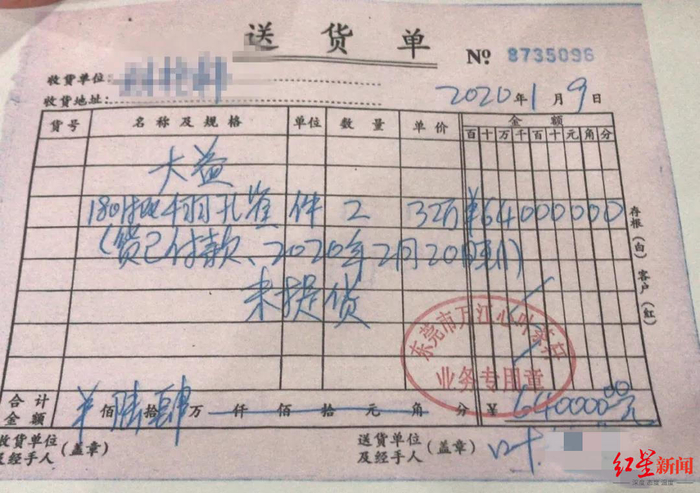 送货单
№ 8735096
收货单位:
收货地址:
2020年1月9日
货号 名称及规格 单位 数量 单价 金额
百十万千百十元角分
大益
1801批 千羽孔雀 件 2 32万 ¥64000000
(货已付款、2020年2月20日到)
未提货
存根(白) 客户(红)
东莞市万江心叶茶行
业务专用章
合计金额 ¥ 佰陆拾肆万仟佰拾元角分 ¥640000.00元
收货单位及经手人(盖章)
送货单位及经手人(盖章) 叶
红星新闻
深度 态度 温度